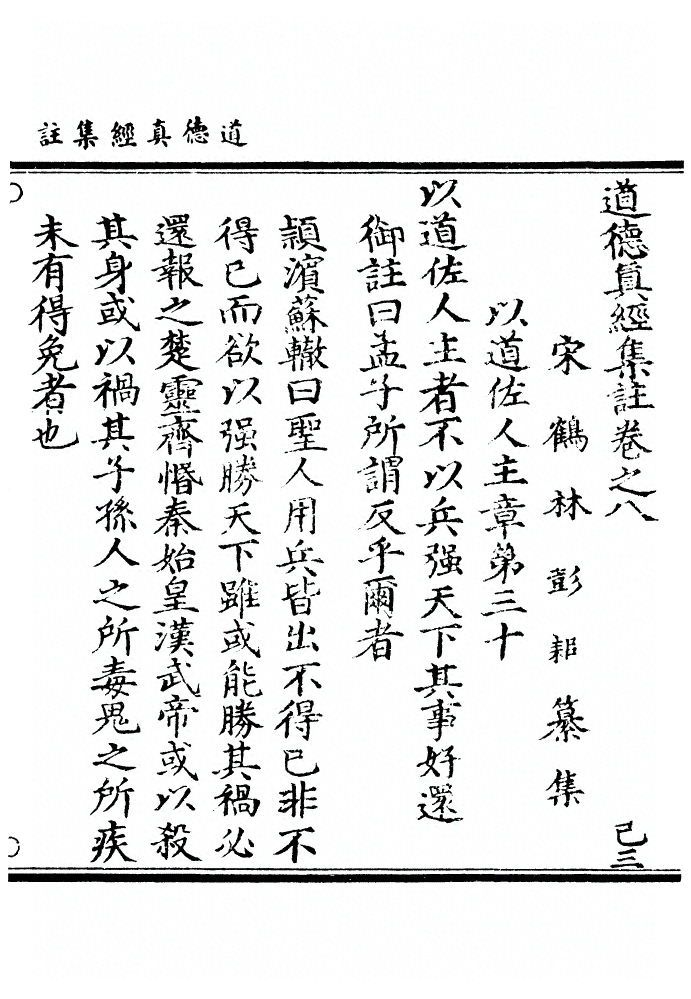 道德真經集註
道德眞經集註卷之八 己三
宋鶴林彭耜纂集
以道佐人主章第三十
以道佐人主者不以兵强天下其事好還
御註曰孟子所謂反乎爾者
頴濵蘇轍曰聖人用兵皆出不得已非不
得已而欲以强勝天下雖或能勝其禍必
還報之楚靈齊愍秦始皇漢武帝或以殺
其身或以禍其子孫人之所毒鬼之所疾
未有得免者也